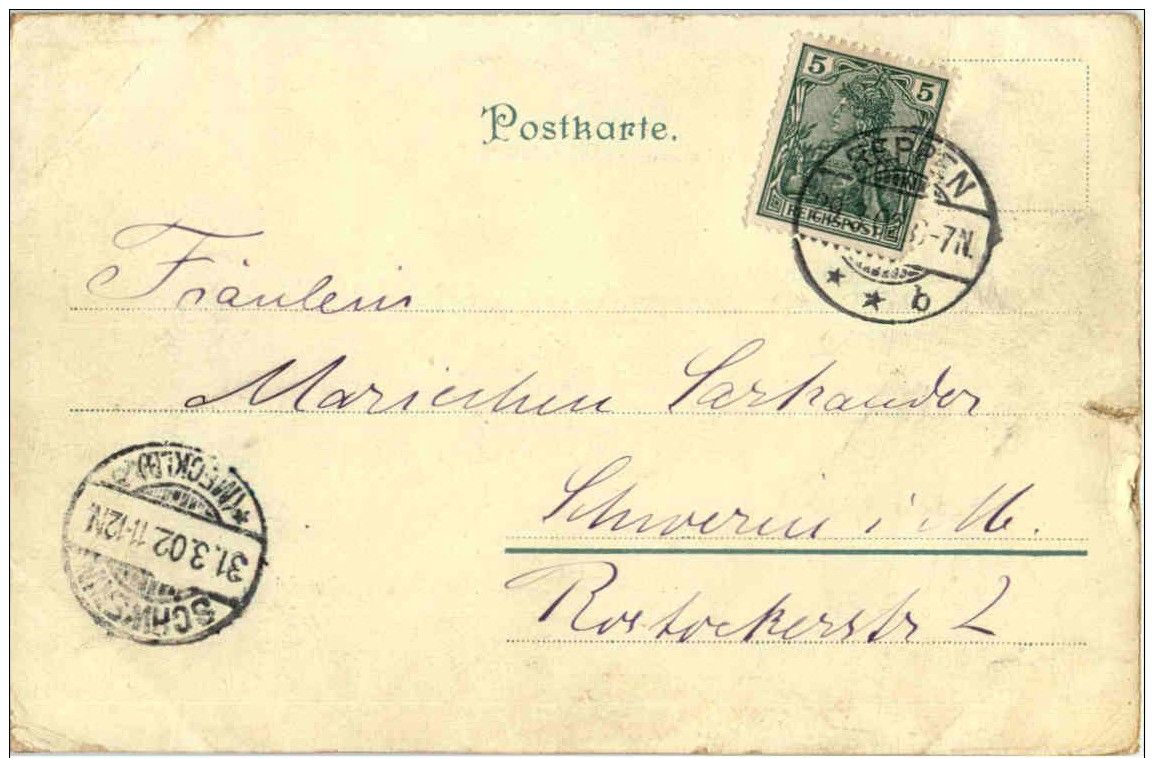 Postkarte.
5 5
REICHSPOST
REPPEN
6-7N.
* * b
Fräulein
Mariechen Sarkander
Schwerin i. M.
Rostockerstr 2
SCHWERIN
31.3.02 11-12N.
*(MECKLB)